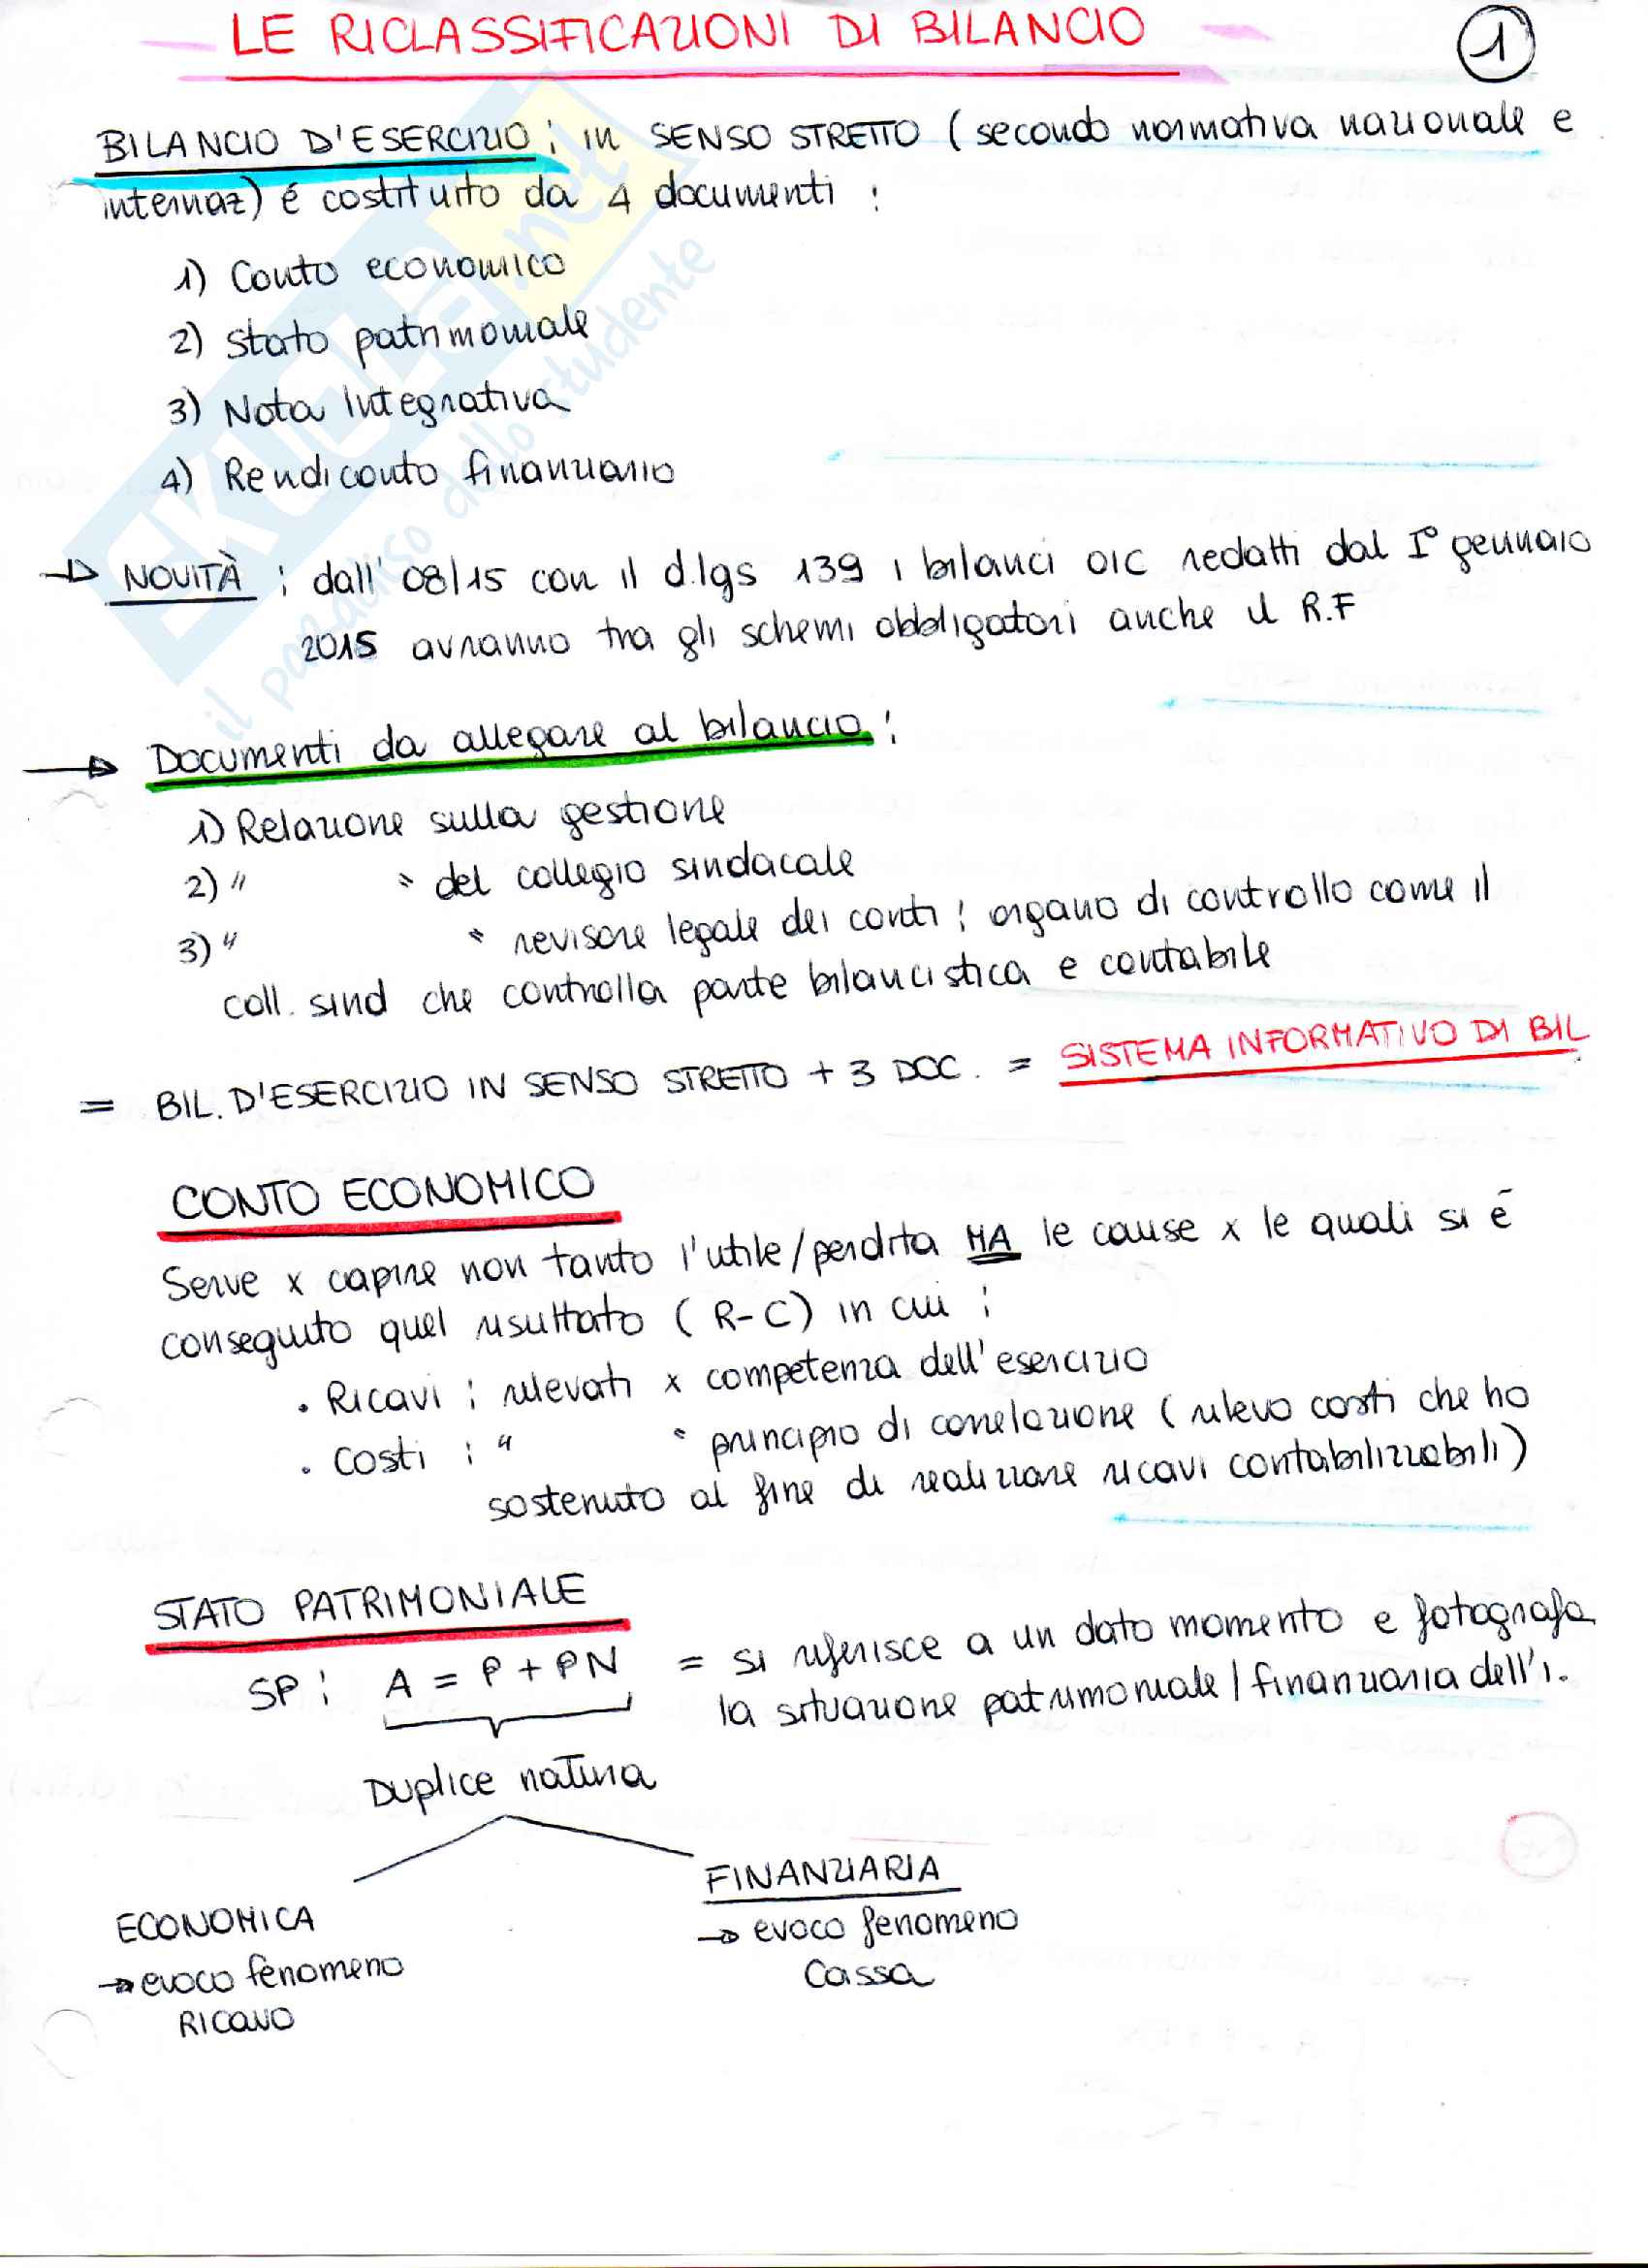 LE RICLASSIFICAZIONI DI BILANCIO
1
BILANCIO D'ESERCIZIO : in SENSO STRETTO ( secondo normativa nazionale e
internaz) é costituito da 4 documenti :
1) Conto economico
2) Stato patrimoniale
3) Nota Integrativa
4) Rendiconto finanziario
→ NOVITÀ : dall' 08/15 con il d.lgs 139 i bilanci OIC redatti dal I° gennaio
2015 avranno tra gli schemi obbligatori anche il R.F
→ Documenti da allegare al bilancio :
1) Relazione sulla gestione
2) " " del collegio sindacale
3) " " revisore legale dei conti : organo di controllo come il
coll. sind che controlla parte bilancistica e contabile
= BIL. D'ESERCIZIO IN SENSO STRETTO + 3 DOC. = SISTEMA INFORMATIVO DI BIL
CONTO ECONOMICO
Serve x capire non tanto l'utile/perdita MA le cause x le quali si é
conseguito quel risultato ( R-C) in cui :
• Ricavi : rilevati x competenza dell'esercizio
• Costi : " " principio di correlazione ( rilevo costi che ho
sostenuto al fine di realizzare ricavi contabilizzabili)
STATO PATRIMONIALE
SP : A = P + PN = si riferisce a un dato momento e fotografa
la situazione patrimoniale / finanziaria dell'i.
Duplice natura
FINANZIARIA
ECONOMICA
→ evoco fenomeno
Cassa
→ evoco fenomeno
RICAVO
SKUOLA.net
il paradiso dello studente